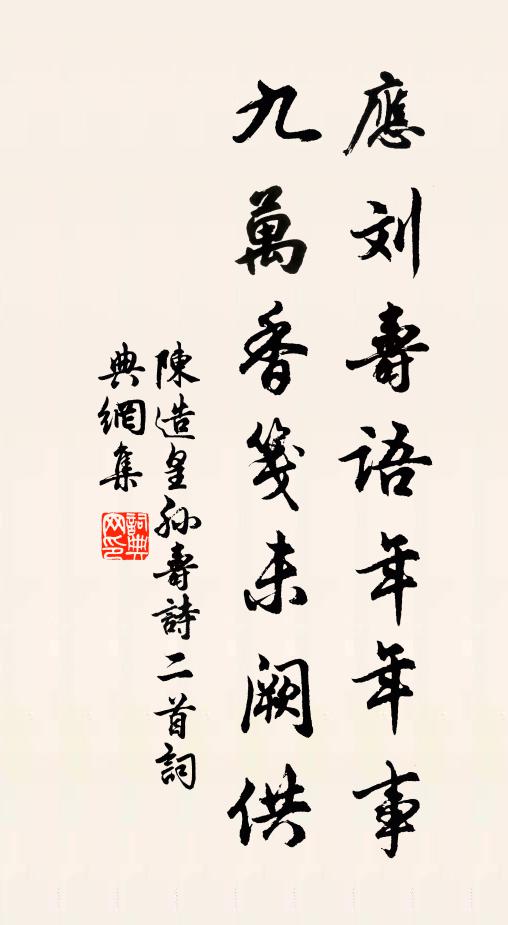 應刘壽語年年事
九萬香箋未闕供
陳造皇孙壽詩二首詞
典網集
詞典
网印